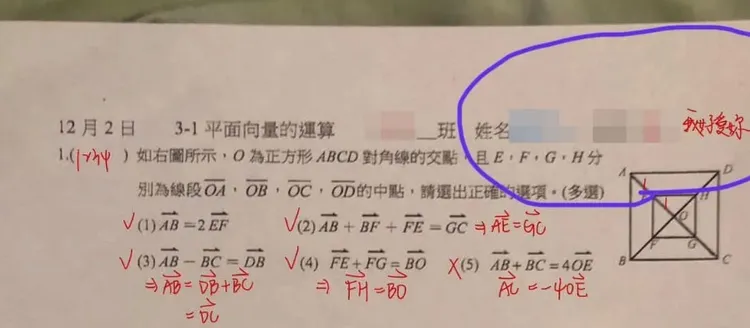 12月2日 3-1 平面向量的運算 __班 姓名
我好愛妳
1.(1234) 如右圖所示,O 為正方形 ABCD 對角線的交點,且 E,F,G,H 分
別為線段 OA,OB,OC,OD 的中點,請選出正確的選項。(多選)
✓(1) AB=2EF ✓(2) AB+BF+FE=GC ⇒ AE=GC
✓(3) AB-BC=DB ✓(4) FE+FG=BO X(5) AB+BC=4OE
⇒ AB=DB+BC ⇒ FH=BO AC=-4OE
=DC
A D
H
O
F G
B C